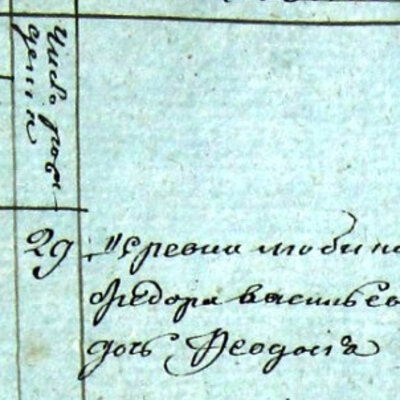 Число рож
дени
29 Деревни любино
Федора васильев
дочь Феодосіа